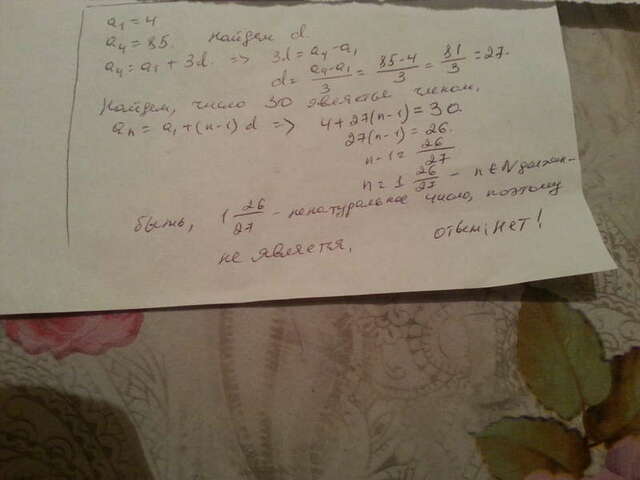 a₁ = 4
a₄ = 85. Найдем d.
a₄ = a₁ + 3d. => 3d = a₄ - a₁
d = (a₄ - a₁)/3 = (85-4)/3 = 81/3 = 27.
Найдем, число 30 является членом,
aₙ = a₁ + (n-1) d => 4 + 27(n-1) = 30
27(n-1) = 26.
n-1 = 26/27
n = 1 26/27 - n ∈ N должно
быть, 1 26/27 - ненатуральное число, поэтому
не является. ответ: нет!